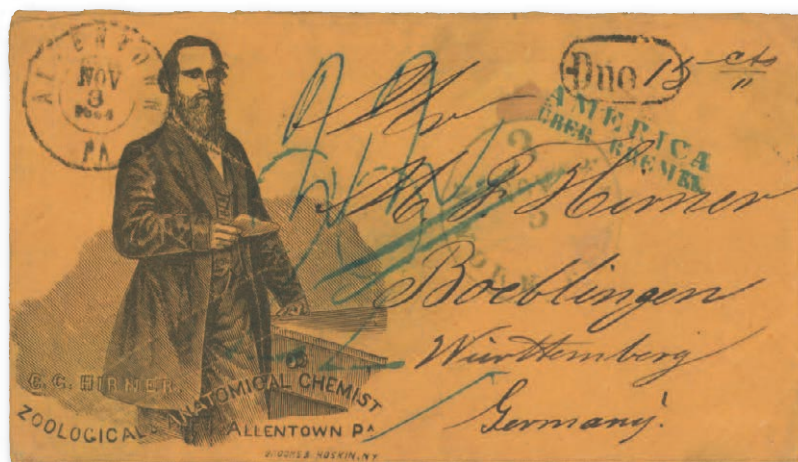 ALLENTOWN
NOV
3
PA
Due 15 cts
AMERICA
ÜBER BREMEN
Mr
Hirner
Boeblingen
Württemberg
Germany.
C. C. HIRNER,
ZOOLOGICAL & ANATOMICAL CHEMIST
ALLENTOWN PA